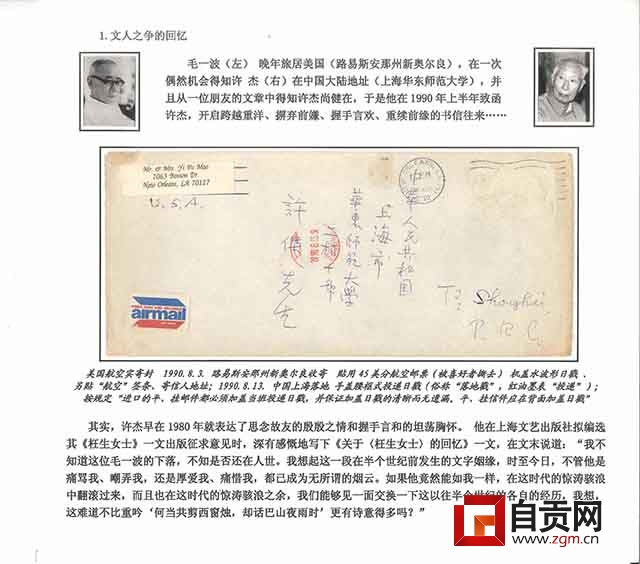 1. 文人之争的回忆
毛一波（左） 晚年旅居美国（路易斯安那州新奥尔良），在一次
偶然机会得知许 杰（右）在中国大陆地址（上海华东师范大学），并
且从一位朋友的文章中得知许杰尚健在，于是他在 1990 年上半年致函
许杰，开启跨越重洋、摒弃前嫌、握手言欢、重续前缘的书信往来……
Mr. & Mrs. Yi Po Mao
7063 Boston Dr.
New Orleans, LA 70127
U.S.A.
中華人民共和国
上海市
華東師範大學
許傑先生
To: Shanghai
P. R. C.
airmail
美国航空实寄封 1990.8.3. 路易斯安那州新奥尔良收寄 贴用 45 美分航空邮票（被喜好者撕去） 机盖水波形日戳 、
另贴“航空”签条、寄信人地址；1990.8.13. 中国上海落地 手盖腰框式投递日戳（俗称“落地戳”，红油墨表“投递”）；
按规定“进口的平、挂邮件都必须加盖当班投递日戳，并保证加盖日戳的清晰而无遗漏，平、挂信件应在背面加盖日戳”
其实，许杰早在 1980 年就表达了思念故友的殷殷之情和握手言和的坦荡胸怀。 他在上海文艺出版社拟编选
其《枉生女士》一文出版征求意见时，深有感慨地写下《关于〈枉生女士〉的回忆》一文，在文末说道：“我不
知道这位毛一波的下落，不知是否还在人世。我想起这一段在半个世纪前发生的文字姻缘，时至今日，不管他是
痛骂我、嘲弄我，还是厚爱我、痛惜我，都已成为无所谓的烟云。如果他竟然能如我一样，在这时代的惊涛骇浪
中翻滚过来，而且也在这时代的惊涛骇浪之余，我们能够见一面交换一下这以往半个世纪的各自的经历，我想，
这难道不比重吟‘何当共剪西窗烛，却话巴山夜雨时’更有诗意得多吗？”
自贡网
www.zgm.cn